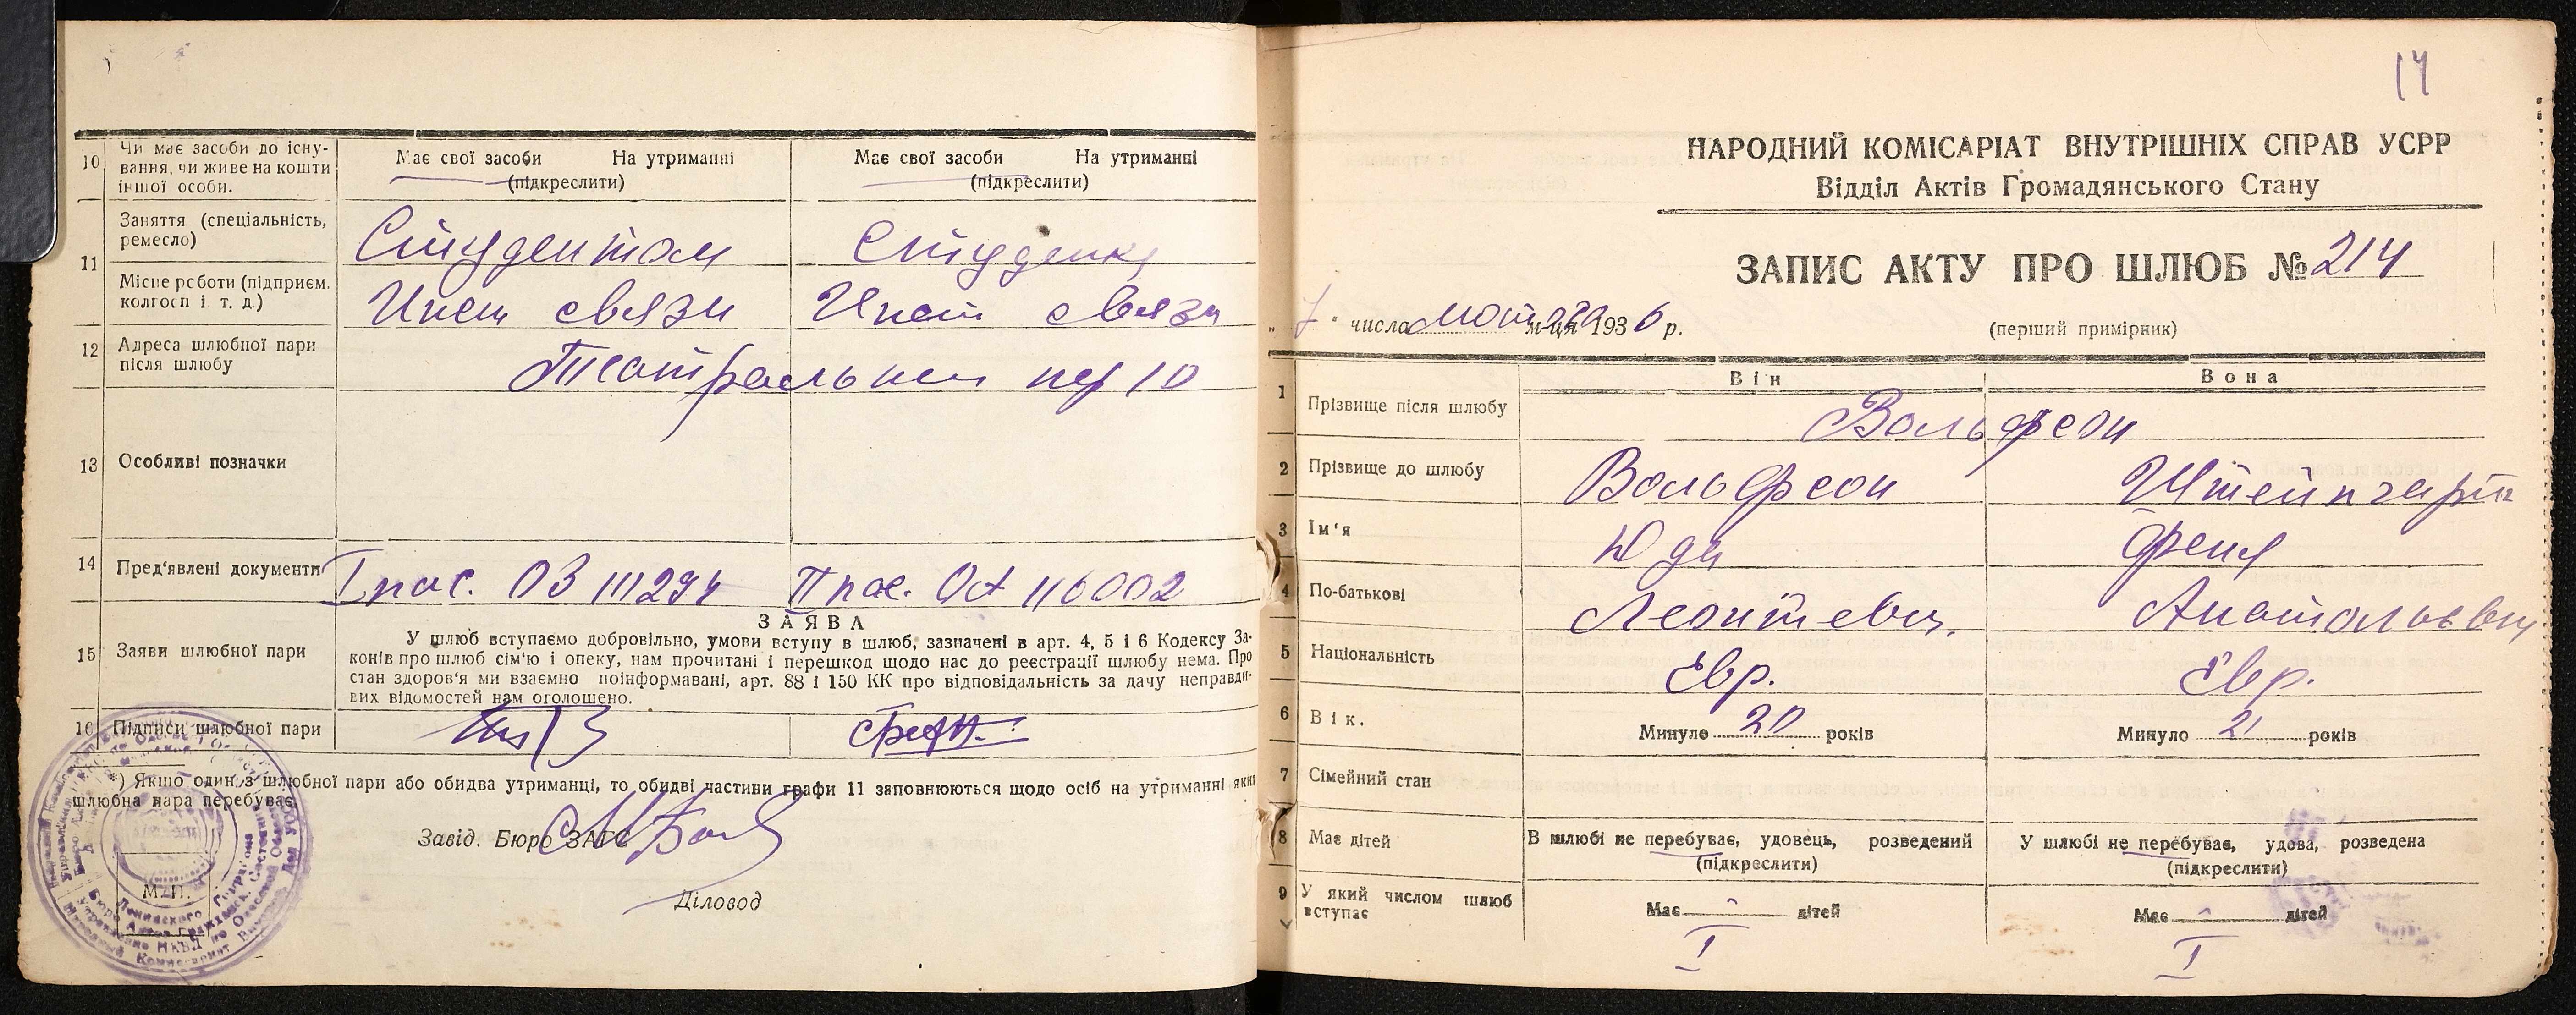 10 Чи має засоби до існу-
вання, чи живе на кошти
іншої особи.
Має свої засоби На утриманні
(підкреслити)
Має свої засоби На утриманні
(підкреслити)
11 Заняття (спеціальність,
ремесло)
Студентом
Студентка
Місце роботи (підприєм.
колгосп і т. д.)
Инст связи
Инст связи
12 Адреса шлюбної пари
після шлюбу
Театральный пер 10
13 Особливі позначки
14 Пред'явлені документи
І пас. ОЗ 111294
ІІ пас. ОА 116002
15 Заяви шлюбної пари
ЗАЯВА
У шлюб вступаємо добровільно, умови вступу в шлюб, зазначені в арт. 4, 5 і 6 Кодексу За-
конів про шлюб сім'ю і опеку, нам прочитані і перешкод щодо нас до реєстрації шлюбу нема. Про
стан здоров'я ми взаємно поінформавані, арт. 88 і 150 КК про відповідальність за дачу неправди-
вих відомостей нам оголошено.
16 Підписи шлюбної пари
*) Якщо один з шлюбної пари або обидва утриманці, то обидві частини графи 11 заповнюються щодо осіб на утриманні яких
шлюбна пара перебуває.
Завід. Бюро ЗАГС
М. П.
Діловод
14
НАРОДНИЙ КОМІСАРІАТ ВНУТРІШНІХ СПРАВ УСРР
Відділ Актів Громадянського Стану
ЗАПИС АКТУ ПРО ШЛЮБ № 214
„ 7 " числа лютого м-ця 1936 р.
(перший примірник)
Він
Вона
1 Прізвище після шлюбу
Вольфсон
2 Прізвище до шлюбу
Вольфсон
3 Ім'я
Юда
Феня
4 По-батькові
Леонтьевич
5 Національність
Євр.
Євр.
6 Вік.
Минуло 20 років
Минуло 21 років
7 Сімейний стан
8 Має дітей
В шлюбі не перебуває, удовець, розведений
(підкреслити)
У шлюбі не перебуває, удова, розведена
(підкреслити)
9 У який числом шлюб
вступає
Має - дітей
Має - дітей
I
I